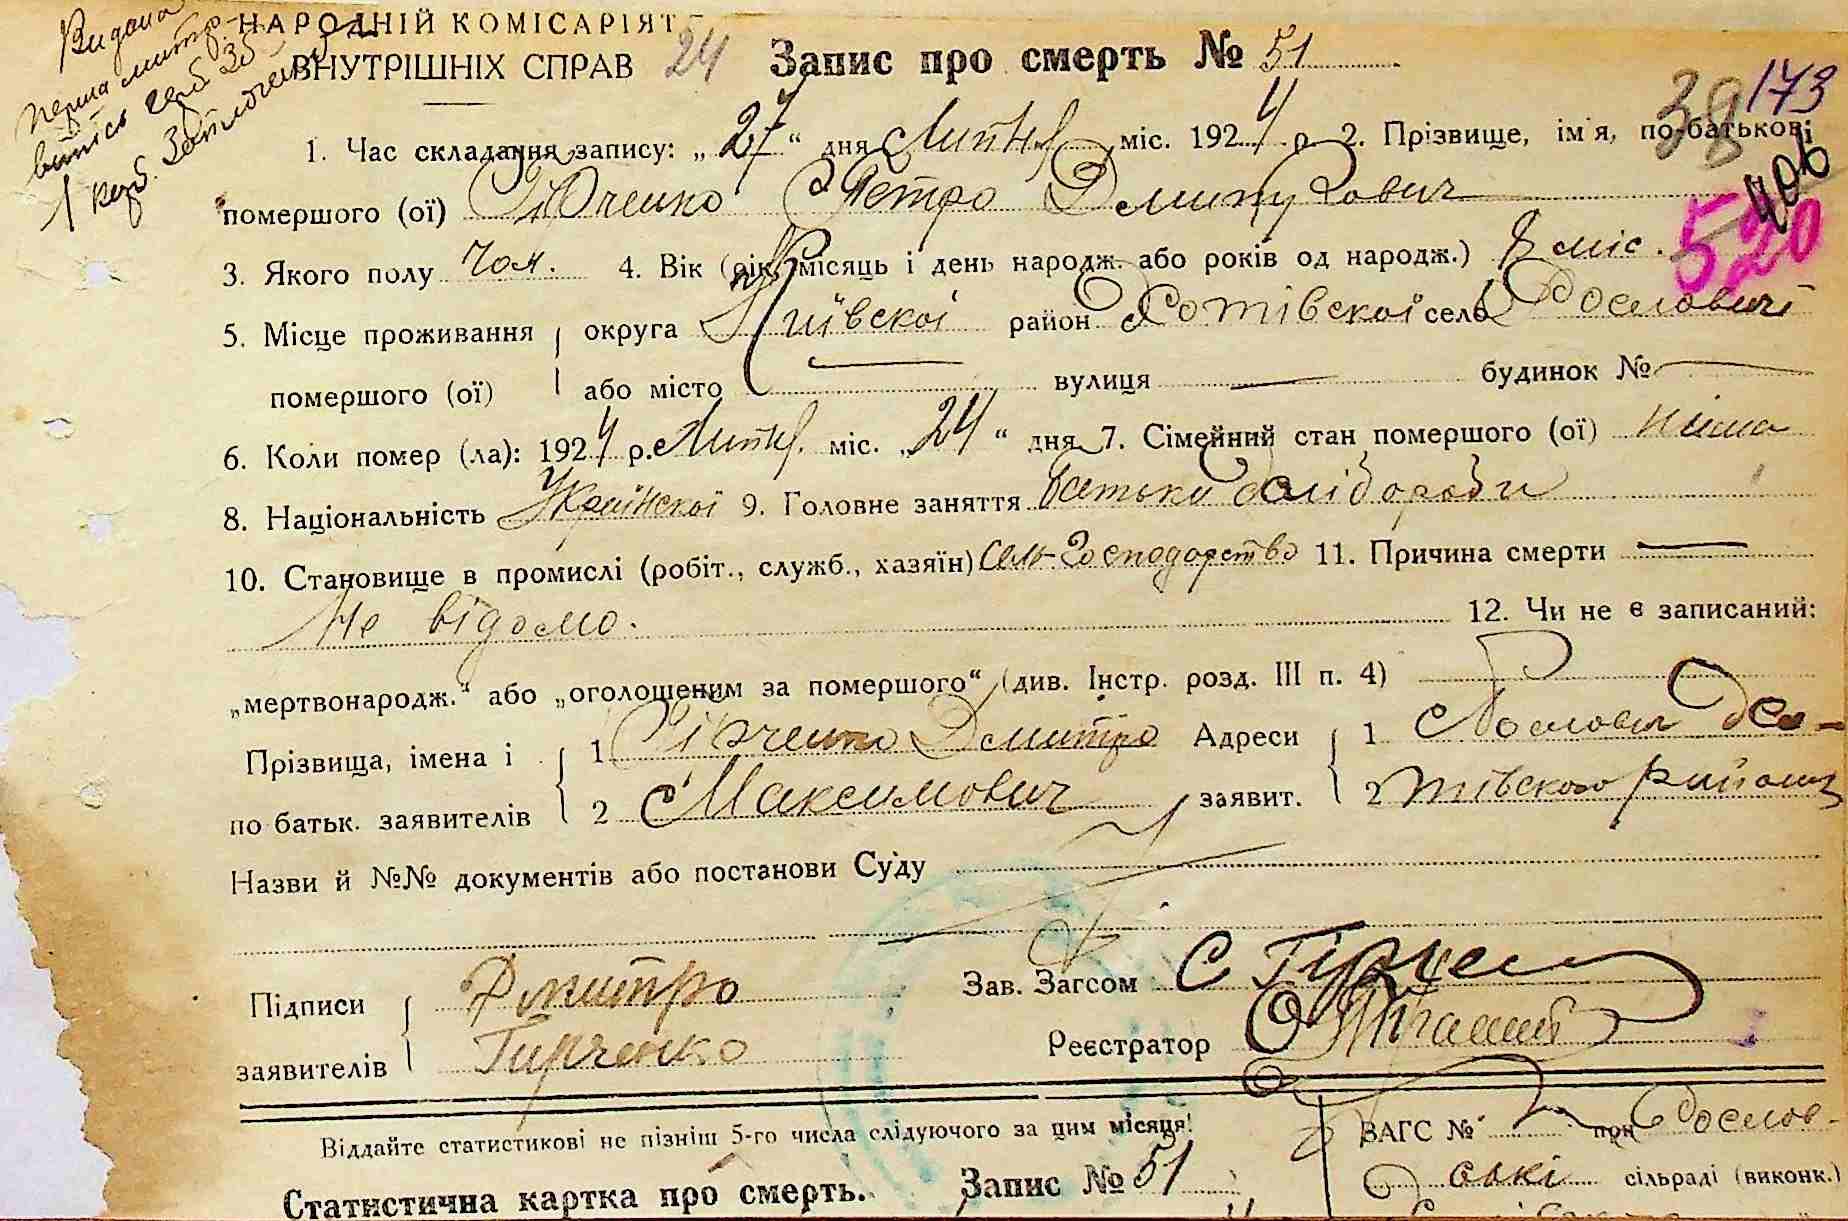 Видана
НАРОДНІЙ КОМІСАРІЯТ
ВНУТРІШНІХ СПРАВ 24 Запис про смерть № 51
38 173
406
520
1. Час складання запису: „27“ дня Липня міс. 1924 р. 2. Прізвище, ім'я, по-батькові
помершого (ої) Гірченко Петро Дмитрович
3. Якого полу чол. 4. Вік (рік, місяць і день народж. або років од народж.) 8 міс.
5. Місце проживання округа Київскої район Хотівскої село Рославичі
помершого (ої) або місто — вулиця — будинок № —
6. Коли помер (ла): 1924 р. Липня міс. „24“ дня 7. Сімейний стан помершого (ої)
8. Національність Українскої 9. Головне заняття батьки хлібороби
10. Становище в промислі (робіт., служб., хазяїн) Сель-Господарство 11. Причина смерти —
Не відомо. 12. Чи не є записаний:
„мертвонародж.“ або „оголошеним за помершого“ (див. Інстр. розд. III п. 4)
Прізвища, імена і 1 Гірченко Дмитро Адреси 1
по батьк. заявителів 2 Максимович заявит. 2 тівского району
Назви й №№ документів або постанови Суду
Підписи Дмитро Зав. Загсом
заявителів Гирченко Реєстратор
Віддайте статистикові не пізніш 5-го числа слідуючого за цим місяця! ЗАГС № при Рослав-
Статистична картка про смерть. Запис № 51 ські сільраді (виконк.)